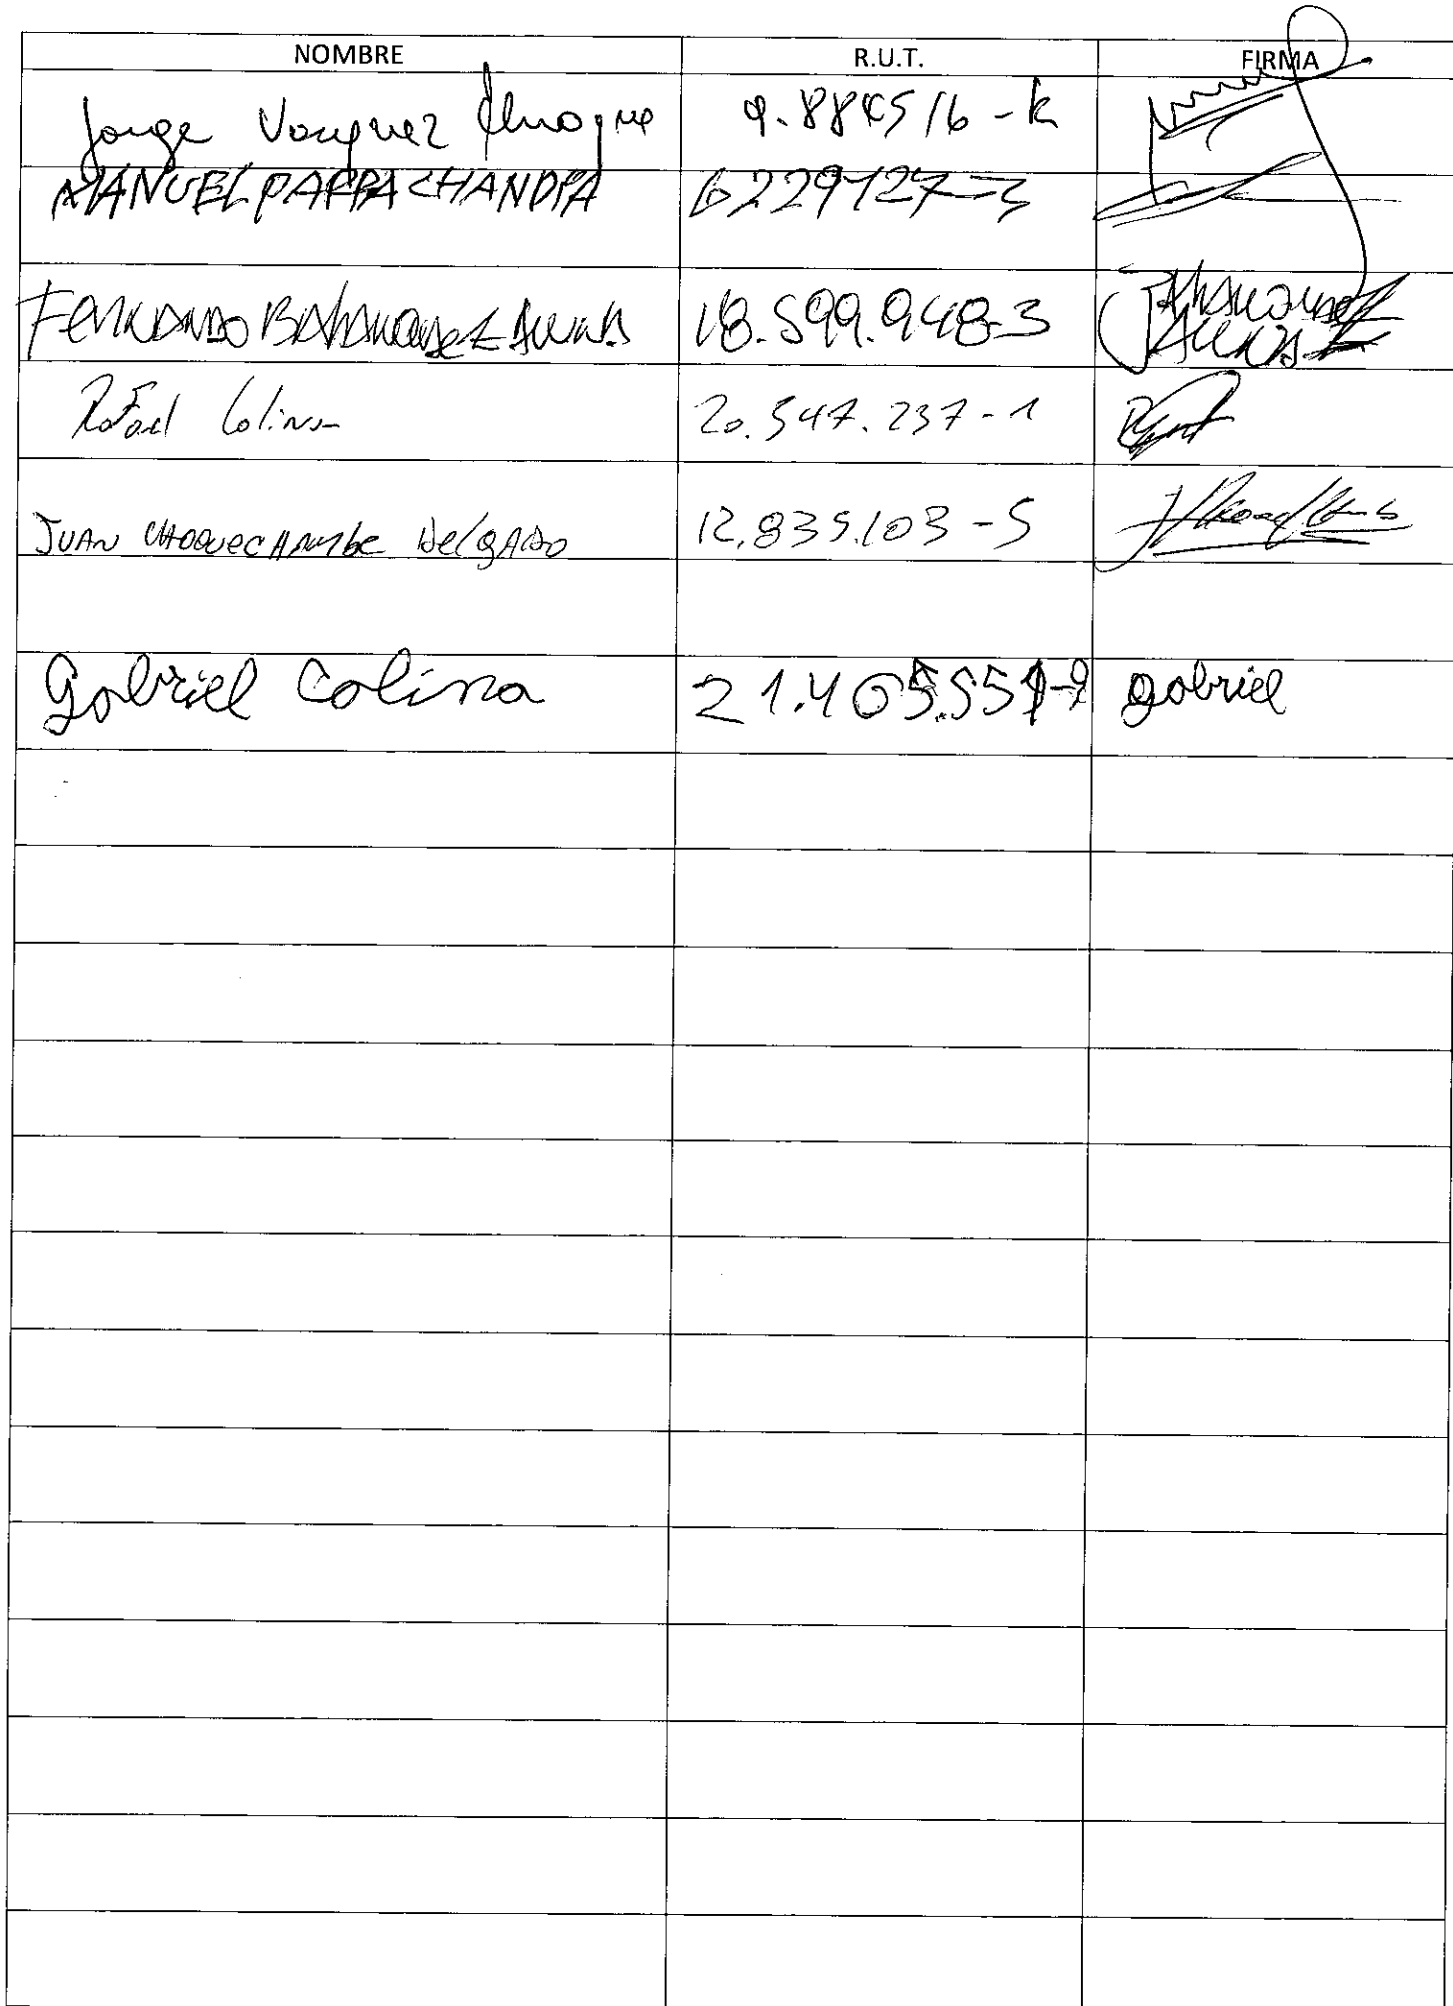 NOMBRE R.U.T. FIRMA
Jorge Vasquez 9.884516-k
MANUEL PARRA CHANDIA 6229127-3
FERNANDO BAHAMONDEZ 18.599.948-3
Rafael Colina 20.547.237-1
JUAN CHOQUECHAMBE DelgADO 12.835.103-5
Gabriel Colina gabriel